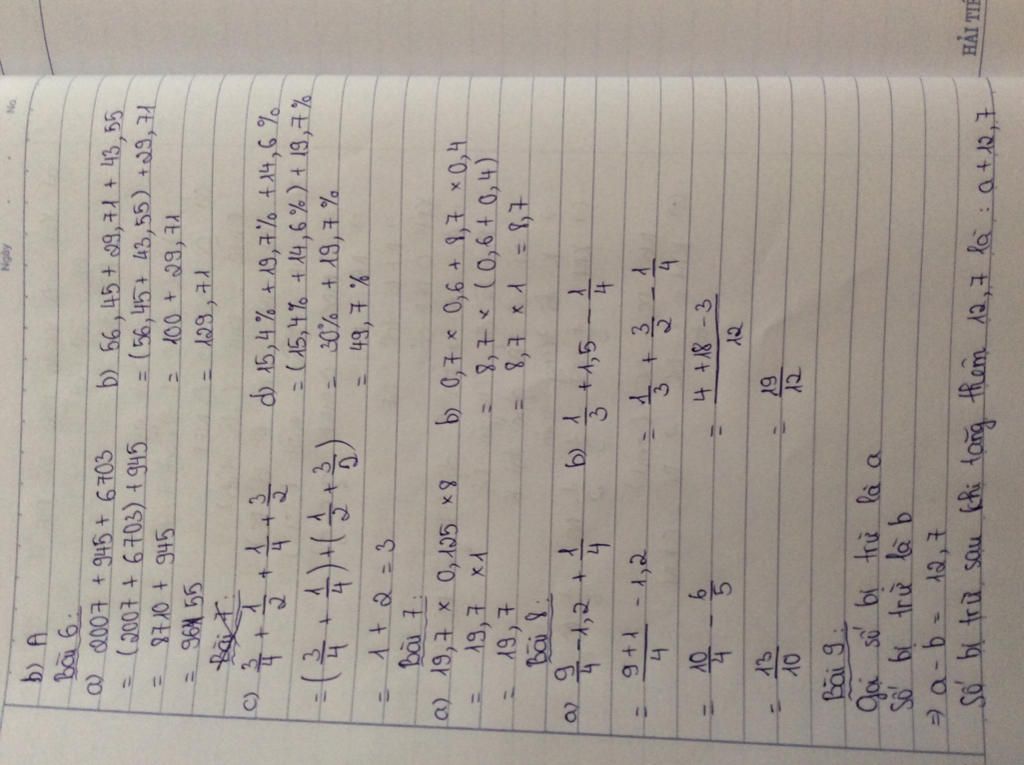 Ngày No.
b) A
Bài 6:
a) 2007 + 945 + 6703 b) 56,45 + 29,71 + 43,55
= (2007 + 6703) + 945 = (56,45 + 43,55) + 29,71
= 8710 + 945 = 100 + 29,71
= 9655 = 129,71
Bài 7:
c) 3/4 + 1/2 + 1/4 + 3/2 d) 15,4% + 19,7% + 14,6%
= (15,4% + 14,6%) + 19,7%
= (3/4 + 1/4) + (1/2 + 3/5) = 30% + 19,7%
= 1 + 2 = 3 = 49,7%
Bài 7:
a) 19,7 × 0,125 × 8 b) 0,7 × 0,6 + 8,7 × 0,4
= 19,7 × 1 = 8,7 × (0,6 + 0,4)
= 19,7 = 8,7 × 1 = 8,7
Bài 8:
a) 9/4 - 1,2 + 1/4 b) 1/3 + 1,5 - 1/4
= (9 + 1)/4 - 1,2 = 1/3 + 3/2 - 1/4
= 10/4 - 6/5 = (4 + 18 - 3)/12
= 13/10 = 19/12
Bài 9:
Gọi số bị trừ là a
Số bị trừ là b
⇒ a - b = 12,7
Số bị trừ sau khi tăng thêm 12,7 là : a + 12,7